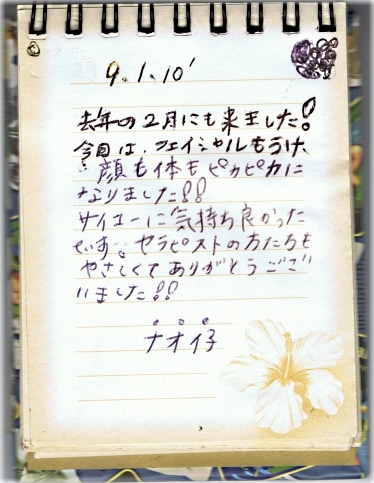 9.1.10'
去年の2月にも来ました!
今回は、フェイシャルもうけ、
顔も体もピカピカに
なりました!!
サイコーに気持ち良かった
です。セラピストの方たちも
やさしくてありがとうござ
いました!!
ナオ子